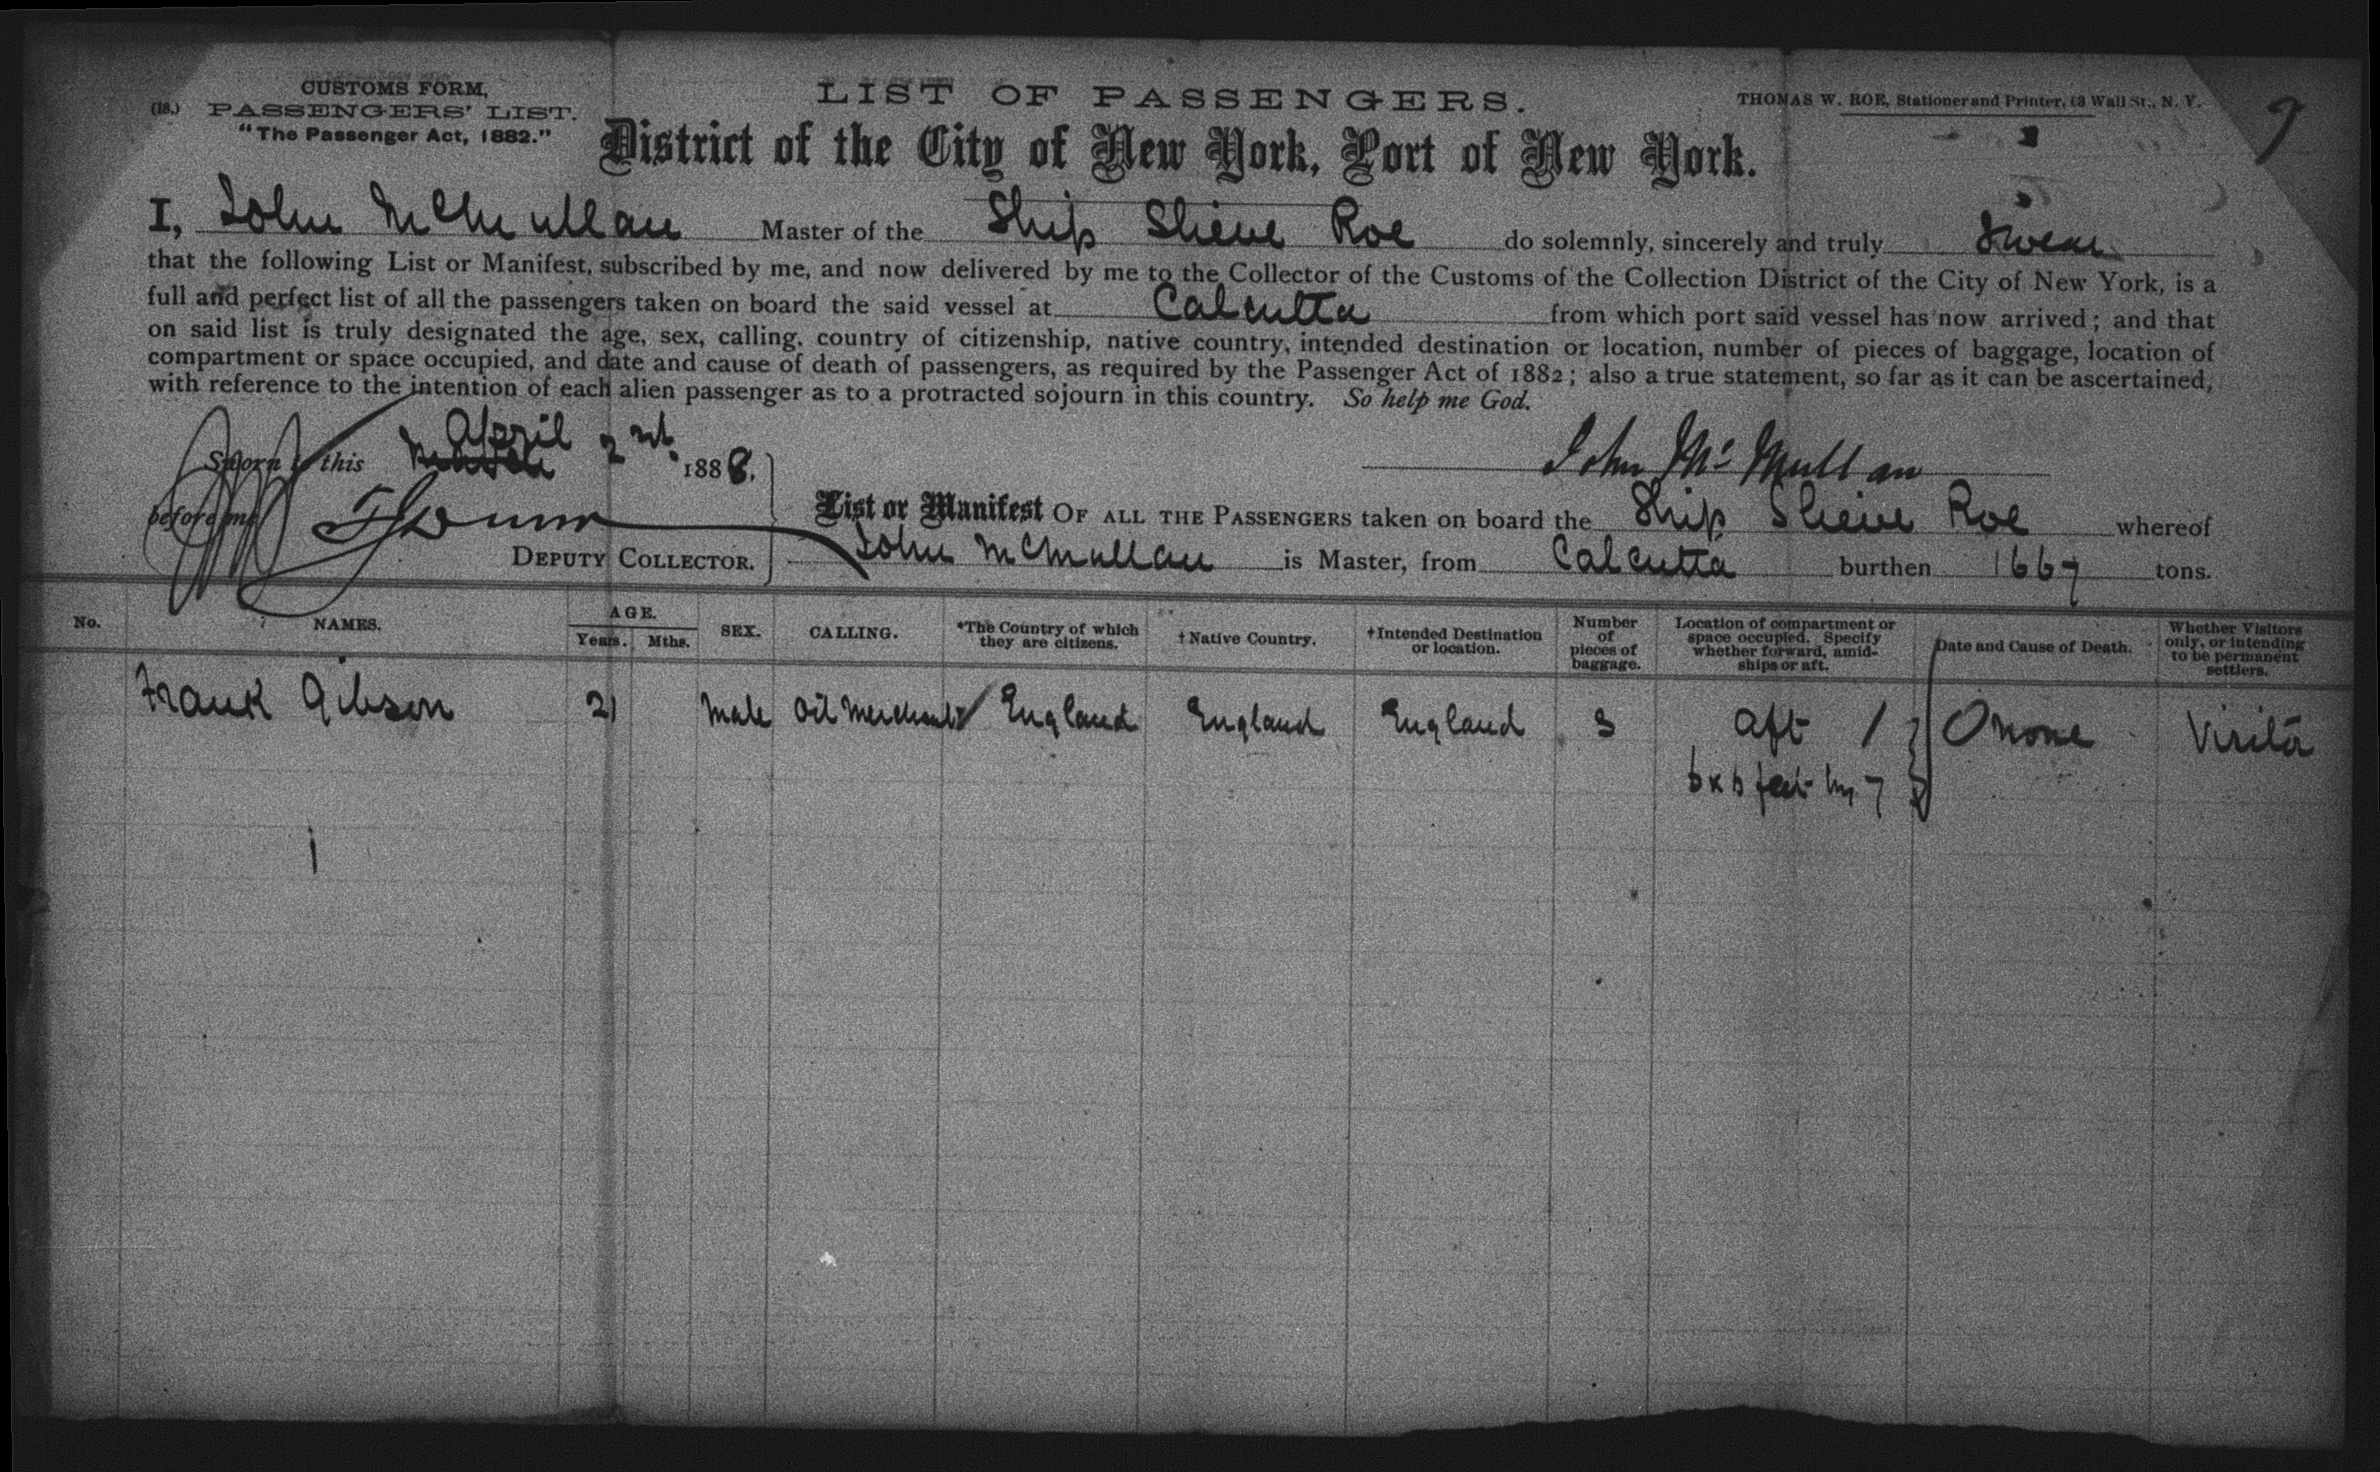 CUSTOMS FORM,
(18.) PASSENGERS' LIST.
"The Passenger Act, 1882."
LIST OF PASSENGERS.
THOMAS W. ROE, Stationer and Printer, 63 Wall St., N. Y.
9
District of the City of New York, Port of New York.
I, John McMullan Master of the Ship Slieve Roe do solemnly, sincerely and truly swear
that the following List or Manifest, subscribed by me, and now delivered by me to the Collector of the Customs of the Collection District of the City of New York, is a
full and perfect list of all the passengers taken on board the said vessel at Calcutta from which port said vessel has now arrived; and that
on said list is truly designated the age, sex, calling, country of citizenship, native country, intended destination or location, number of pieces of baggage, location of
compartment or space occupied, and date and cause of death of passengers, as required by the Passenger Act of 1882; also a true statement, so far as it can be ascertained,
with reference to the intention of each alien passenger as to a protracted sojourn in this country. So help me God.
Sworn to this March April 2nd 1888.
John McMullan
before me
DEPUTY COLLECTOR.
List or Manifest OF ALL THE PASSENGERS taken on board the Ship Slieve Roe whereof
John McMullan is Master, from Calcutta burthen 1667 tons.
No. NAMES. AGE. Years. Mths. SEX. CALLING. *The Country of which they are citizens. †Native Country. †Intended Destination or location. Number of pieces of baggage. Location of compartment or space occupied. Specify whether forward, amidships or aft. Date and Cause of Death. Whether Visitors only, or intending to be permanent settlers.
Frank Gibson 21 Male Oil Merchant England England England 3 Aft / None Visitor
6 x 6 feet by 7
1